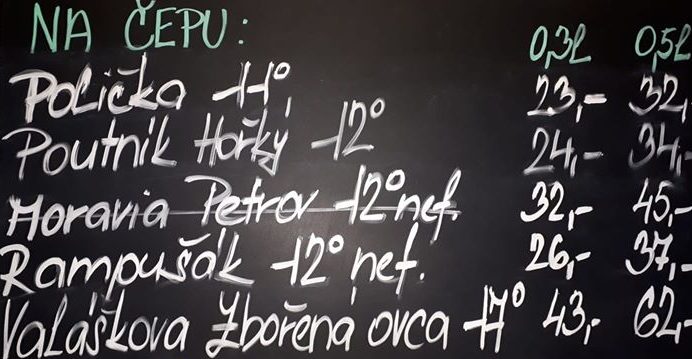 NA ČEPU: 0,3l 0,5l
Polička 11° 23,- 32,
Poutník Hořký 12° 24,- 34,-
Moravia Petrov 12° nef. 32,- 45,-
Rampušák 12° nef. 26,- 37,-
Valáškova Zbořená ovca 17° 43,- 62,-